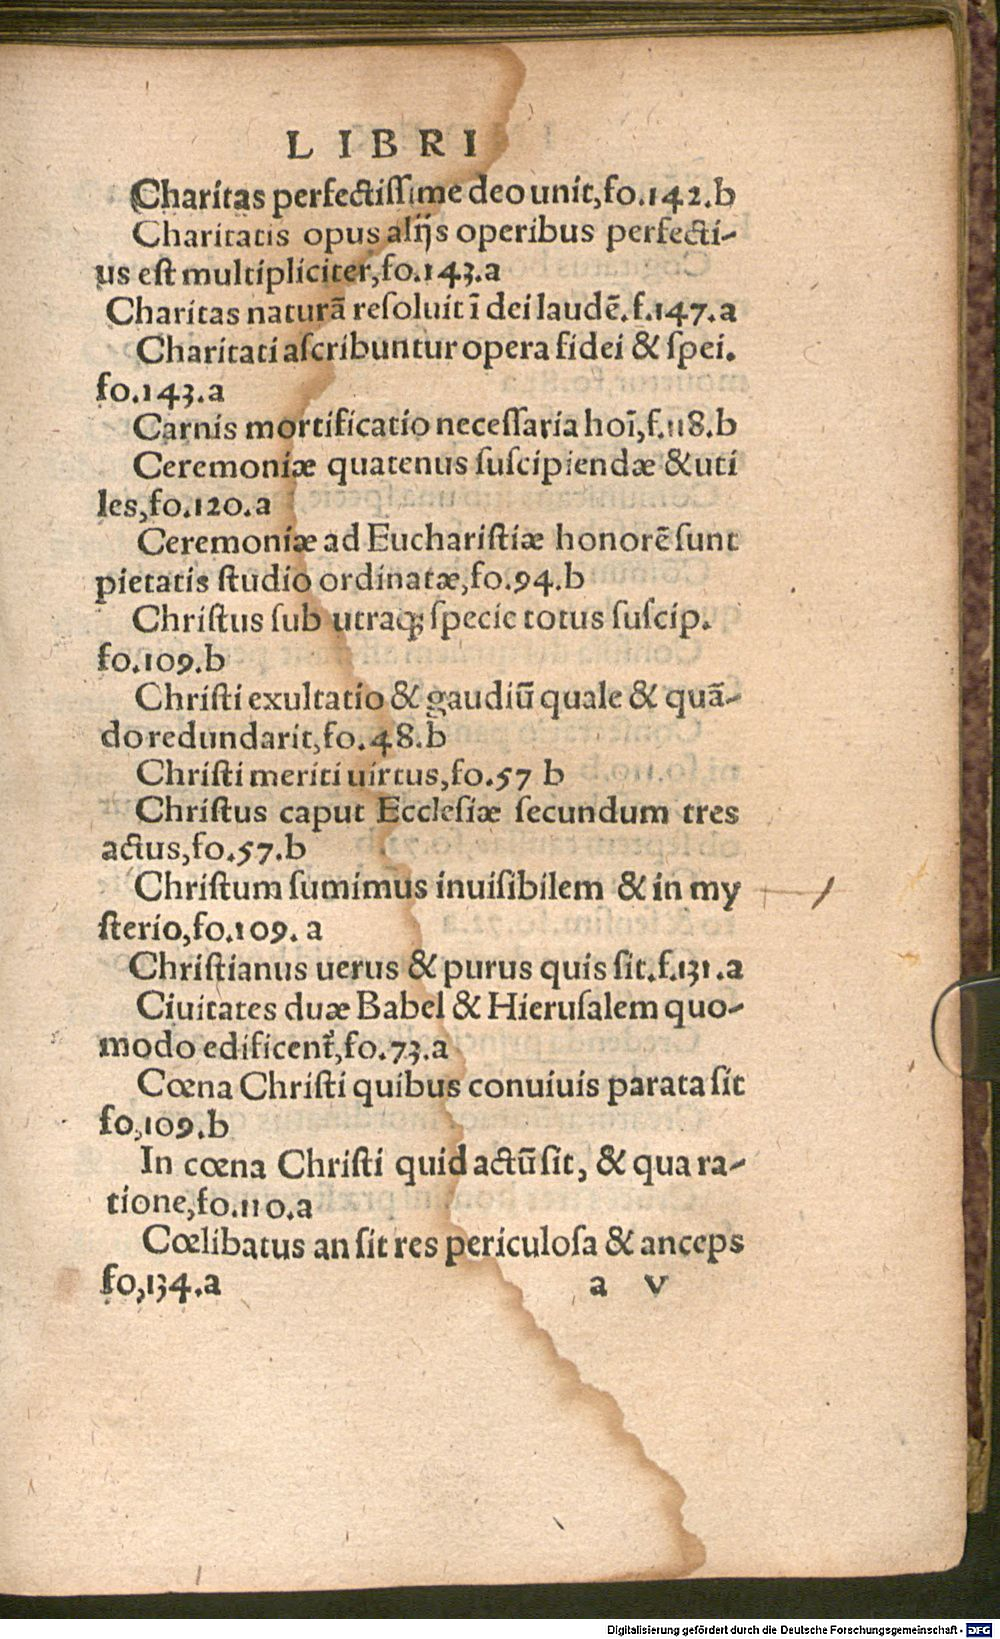 LIBRI
Charitas perfectissime deo unit,fo.142.b
Charitatis opus alijs operibus perfecti-
us est multipliciter,fo.143.a
Charitas naturā resoluit ī dei laudē.f.147.a
Charitati ascribuntur opera fidei & spei.
fo.143.a
Carnis mortificatio necessaria hoī,f.118.b
Ceremoniæ quatenus suscipiendæ & uti
les,fo.120.a
Ceremoniæ ad Eucharistiæ honorē sunt
pietatis studio ordinatæ,fo.94.b
Christus sub utraq; specie totus suscip.
fo.109.b
Christi exultatio & gaudiū quale & quā-
do redundarit,fo.48.b
Christi meriti uirtus,fo.57 b
Christus caput Ecclesiæ secundum tres
actus,fo.57.b
Christum sumimus inuisibilem & in my
sterio,fo.109. a
Christianus uerus & purus quis sit.f.131.a
Ciuitates duæ Babel & Hierusalem quo-
modo edificent᷑,fo.73.a
Cœna Christi quibus conuiuis parata sit
fo,109.b
In cœna Christi quid actū sit, & qua ra-
tione,fo.110.a
Cœlibatus an sit res periculosa & anceps
fo,134.a
a v
Digitalisierung gefördert durch die Deutsche Forschungsgemeinschaft - DFG